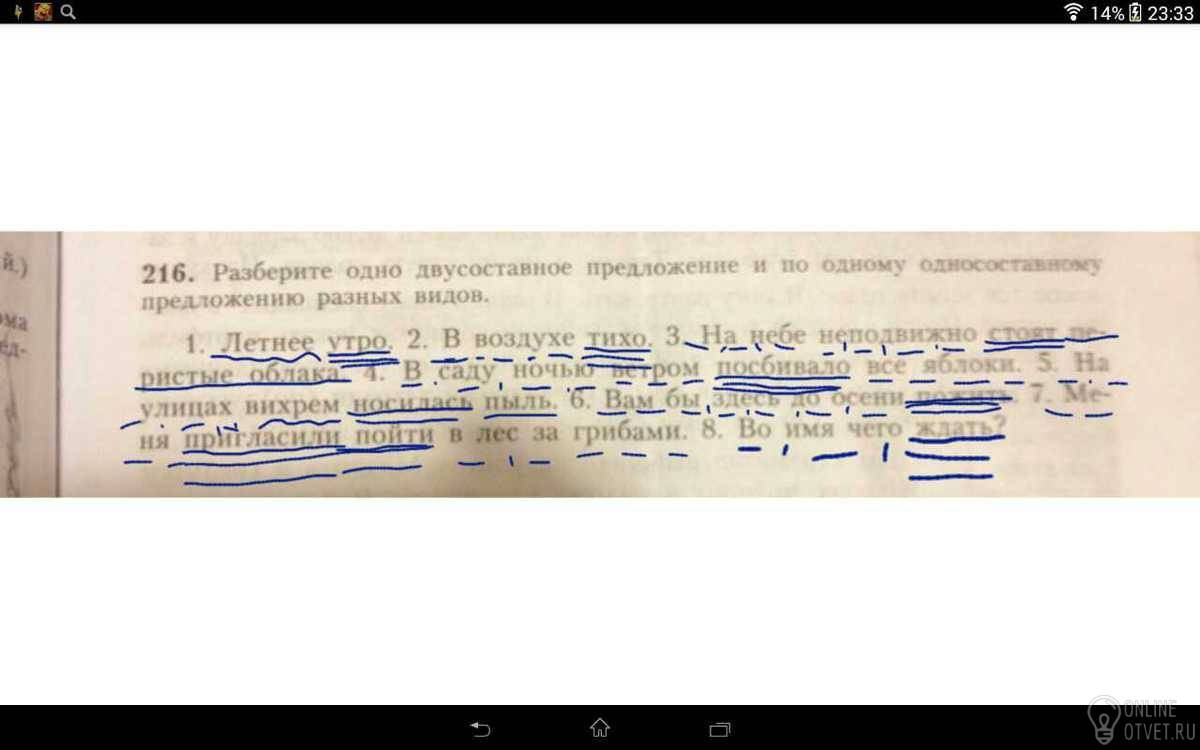 14% 23:33
й.)
216. Разберите одно двусоставное предложение и по одному односоставному
предложению разных видов.
1. Летнее утро. 2. В воздухе тихо. 3. На небе неподвижно стоят пе-
ристые облака. 4. В саду ночью ветром посбивало все яблоки. 5. На
улицах вихрем носилась пыль. 6. Вам бы здесь до осени пожить. 7. Ме-
ня пригласили пойти в лес за грибами. 8. Во имя чего ждать?
ONLINE
OTVET.RU